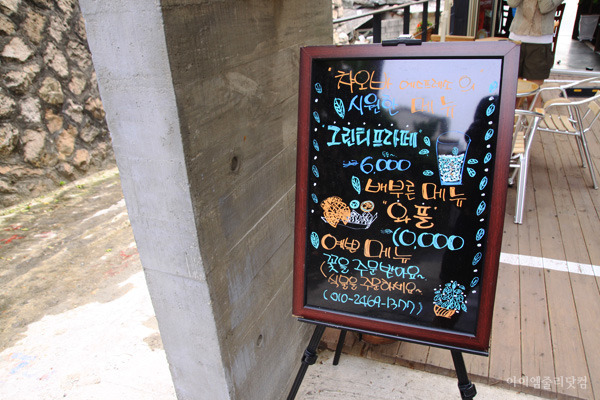 "차오바 에스프레소 의
시원한 메뉴
그린티프라페"
6,000
배부른 메뉴
"와플"
10,000
예쁜 메뉴
꽃을 주문받아요~
(식물을 주문하세요~
(010-2469-1377)
아이엠쥴리닷컴